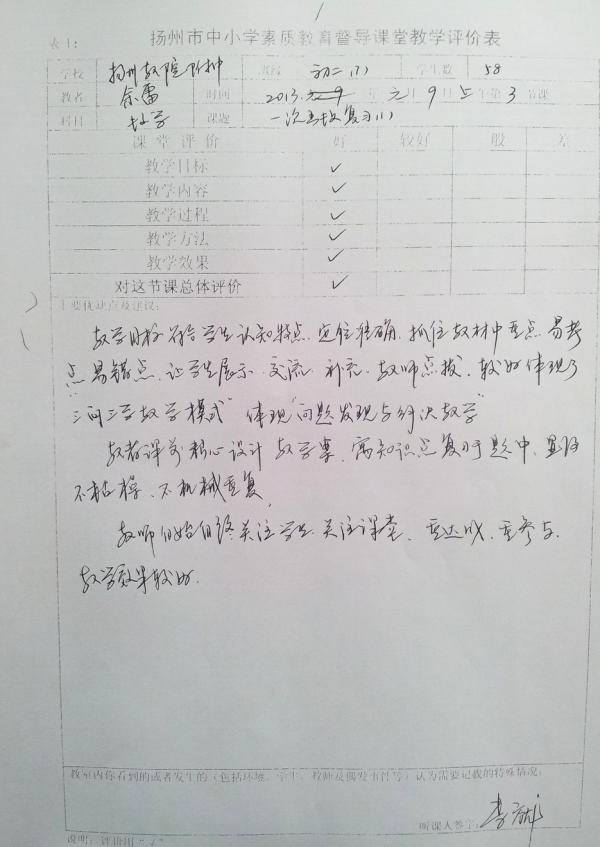 表1: 扬州市中小学素质教育督导课堂教学评价表
学校 扬州教院附中 班级 初二(1) 学生数 58
教者 余雷 时间 2013. 年 元月9日上午第3节课
科目 数学 课题 一次函数复习(1)
课堂评价 好 较好 一般 差
教学目标 ✓
教学内容 ✓
教学过程 ✓
教学方法 ✓
教学效果 ✓
对这节课总体评价 ✓
主要优缺点及建议:
教学目标符合学生认知特点,定位准确,抓住教材中重点、易考
点、易错点,让学生展示、交流、补充,教师点拨,较好体现了
"三问三学教学模式"体现"问题发现与解决教学"
教者课前精心设计教学案,寓知识点复习于题中,
不枯燥、不机械重复。
教师自始自终关注学生、关注课堂、重达成、重参与,
教学效果较好.
教室内你看到的或者发生的(包括环境、学生、教师及偶发事件等)认为需要记载的特殊情况:
听课人签字: 李
说明: 评价用"✓"